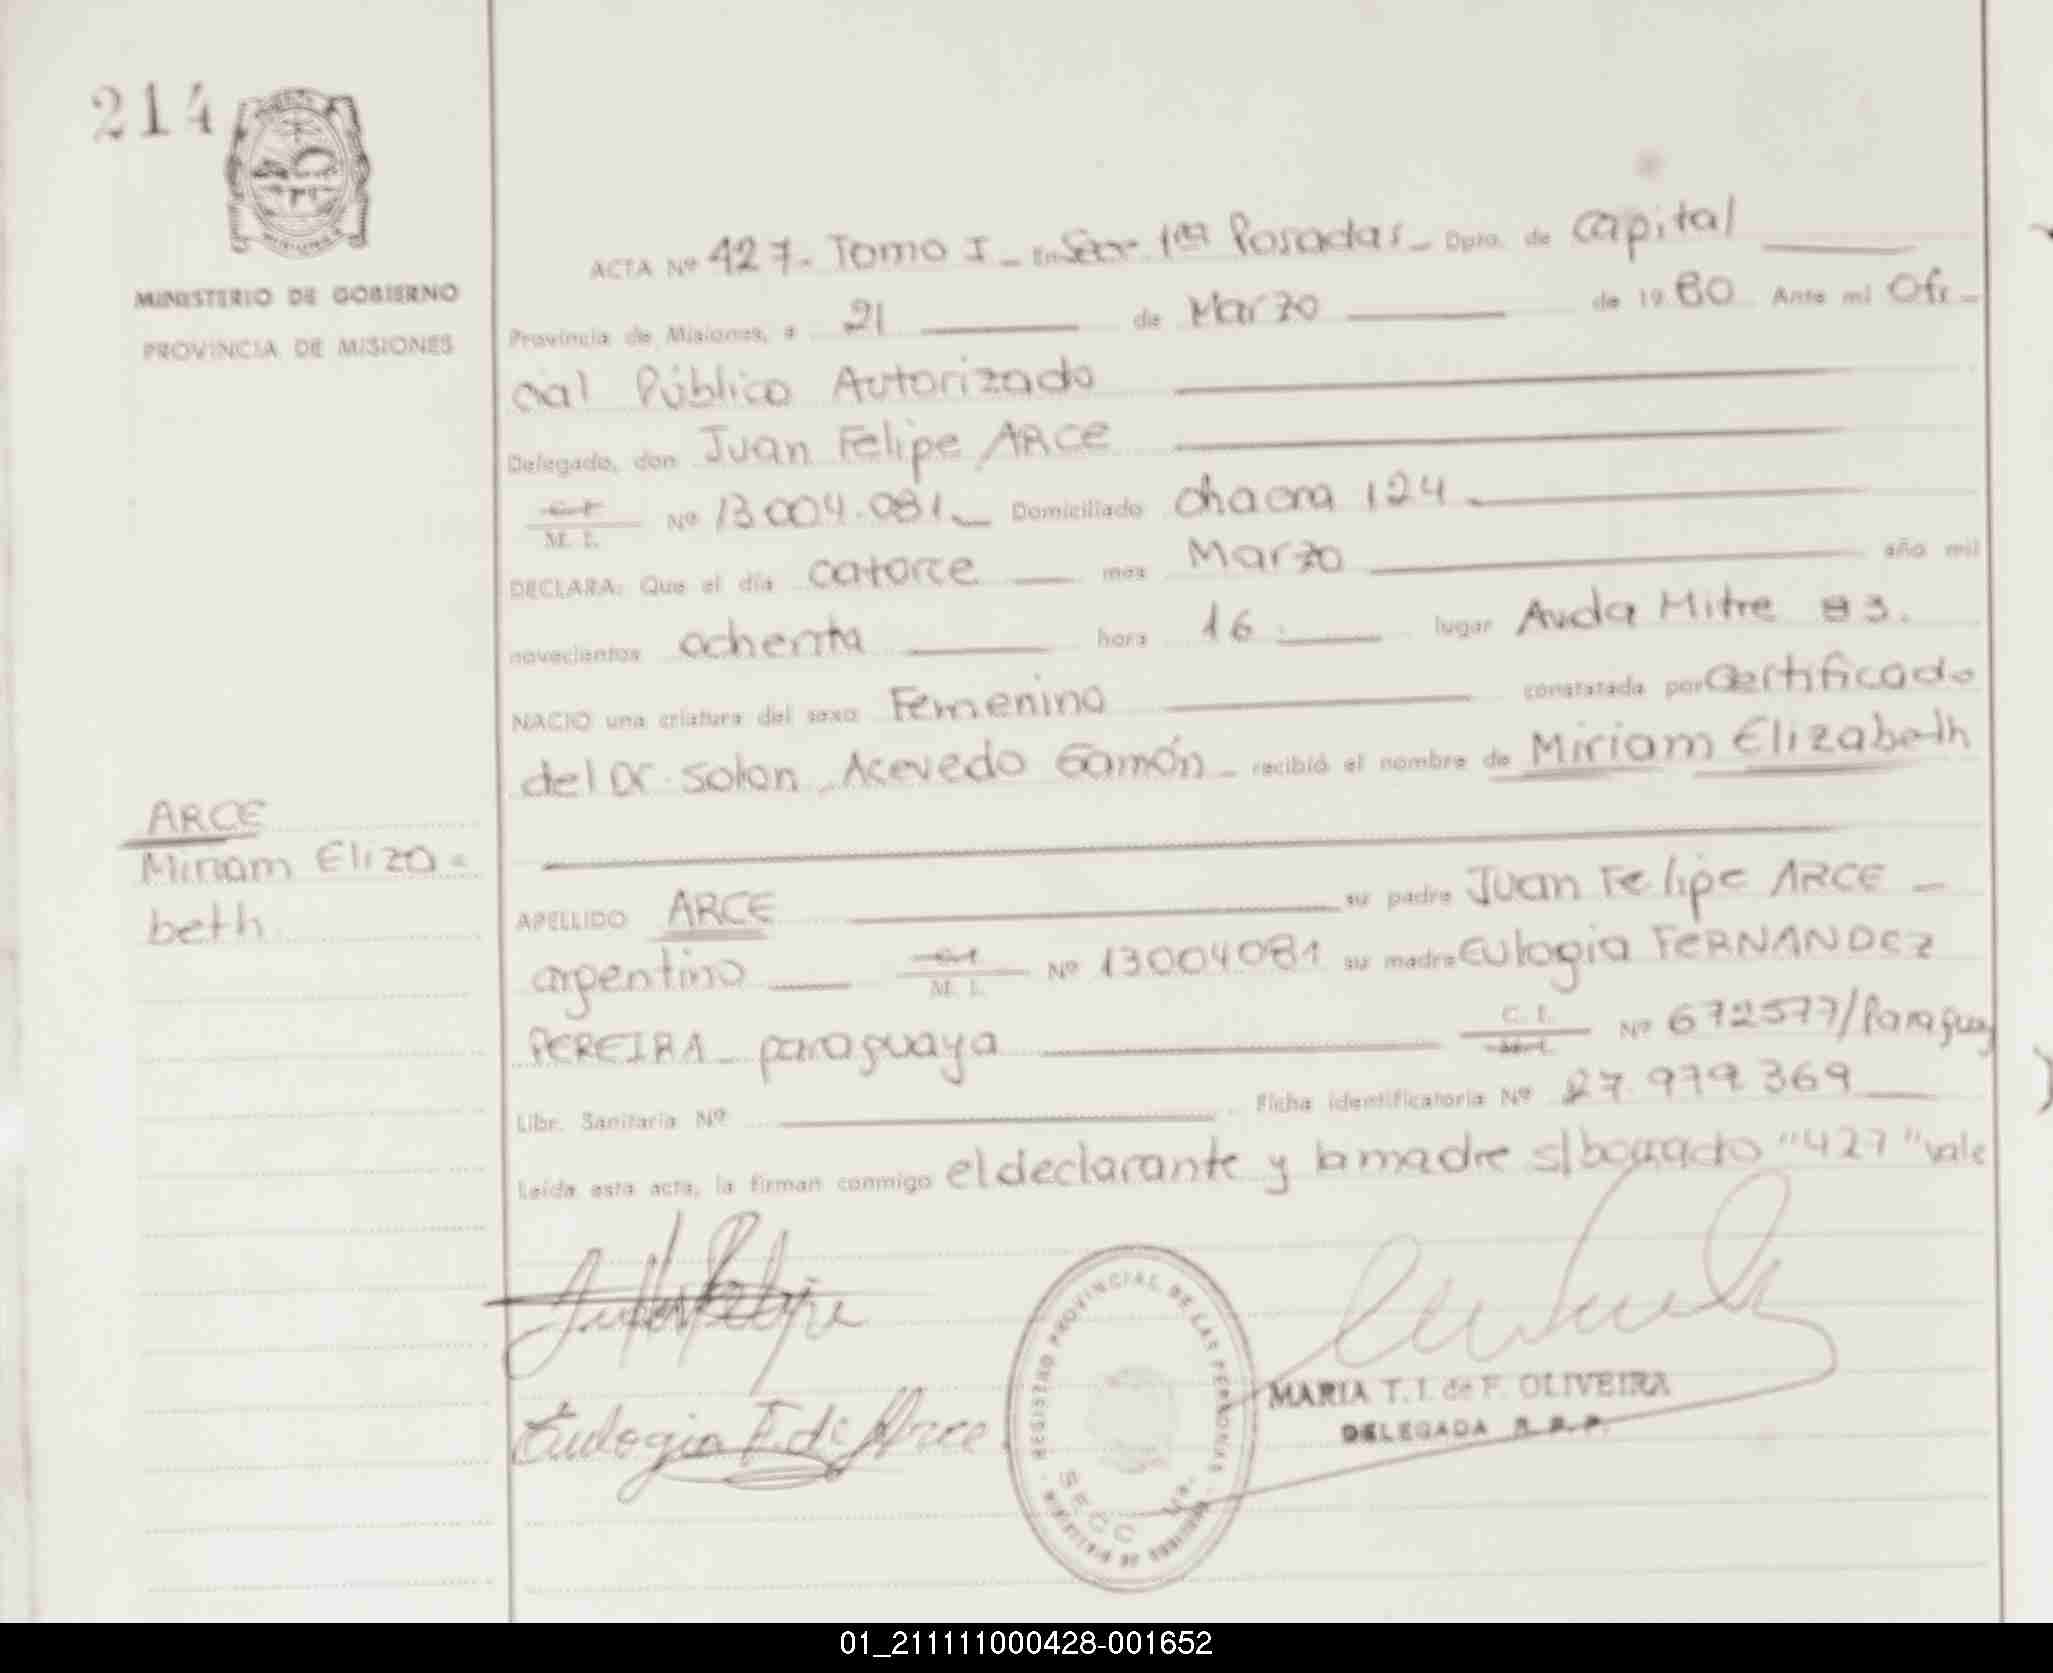 214
MINISTERIO DE GOBIERNO
PROVINCIA DE MISIONES
ARCE
Miriam Eliza-
beth
ACTA Nº 427.- Tomo I - En Secc 1ra Posadas - Dpto. de Capital
Provincia de Misiones, a 21 de Marzo de 1980 Ante mi Ofi-
cial Público Autorizado
Delegado, don Juan Felipe ARCE
C.I. M. I. Nº 13004.081 Domiciliado chacra 124
DECLARA: Que el día catorce mes Marzo año mil
novecientos ochenta hora 16. lugar Avda Mitre 93.
NACIO una criatura del sexo Femenino constatada por Certificado
del Dr. Solon Acevedo Gamón - recibió el nombre de Miriam Elizabeth
APELLIDO ARCE su padre Juan Felipe ARCE -
argentino C.I. M. I. Nº 13004081 su madre Eulogia FERNANDEZ
PEREIRA - paraguaya C. I. M.I. Nº 672577/Paraguay
Libr. Sanitaria Nº Ficha identificatoria Nº 27.979.369
Leída esta acta, la firman conmigo el declarante y la madre s/borrado "427" vale
Felipe
Eulogia F. de Arce
REGISTRO PROVINCIAL DE LAS PERSONAS
SECC 1ra.
MARIA T. I. de F. OLIVEIRA
DELEGADA R. P. P.
01_211111000428-001652